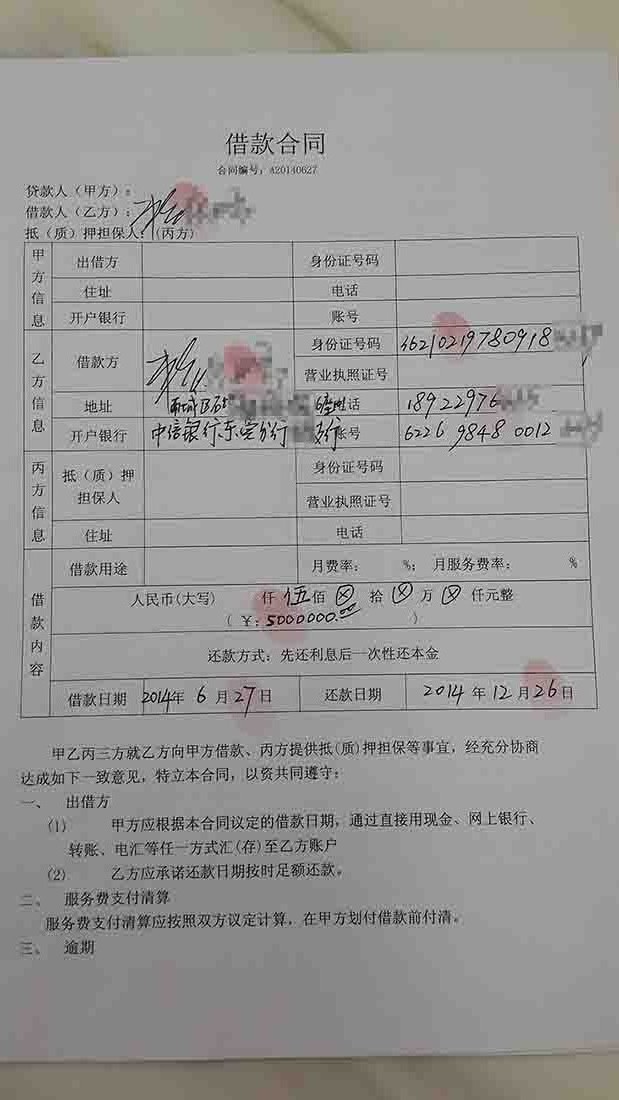 借款合同
合同编号：A20140627
贷款人（甲方）：
借款人（乙方）：
抵（质）押担保人：（丙方）
甲方信息
出借方 身份证号码
住址 电话
开户银行 账号
乙方信息
借款方 身份证号码 46210219780918
营业执照证号
地址 西城区 电话 18922976
开户银行 中信银行东莞分行 支行 账号 6226 9848 0012
丙方信息
抵（质）押担保人 身份证号码
营业执照证号
住址 电话
借款内容
借款用途 月费率： %； 月服务费率： %
人民币(大写) 仟 伍佰 ⊗ 拾 ⊗ 万 ⊗ 仟元整
（ ￥：5000000.00 ）
还款方式：先还利息后一次性还本金
借款日期 2014年 6 月 27 日 还款日期 2014 年 12 月 26 日
甲乙丙三方就乙方向甲方借款、丙方提供抵(质)押担保等事宜，经充分协商
达成如下一致意见，特立本合同，以资共同遵守：
一、 出借方
(1) 甲方应根据本合同议定的借款日期，通过直接用现金、网上银行、
转账、电汇等任一方式汇(存)至乙方账户
(2) 乙方应承诺还款日期按时足额还款。
二、 服务费支付清算
服务费支付清算应按照双方议定计算，在甲方划付借款前付清。
三、 逾期